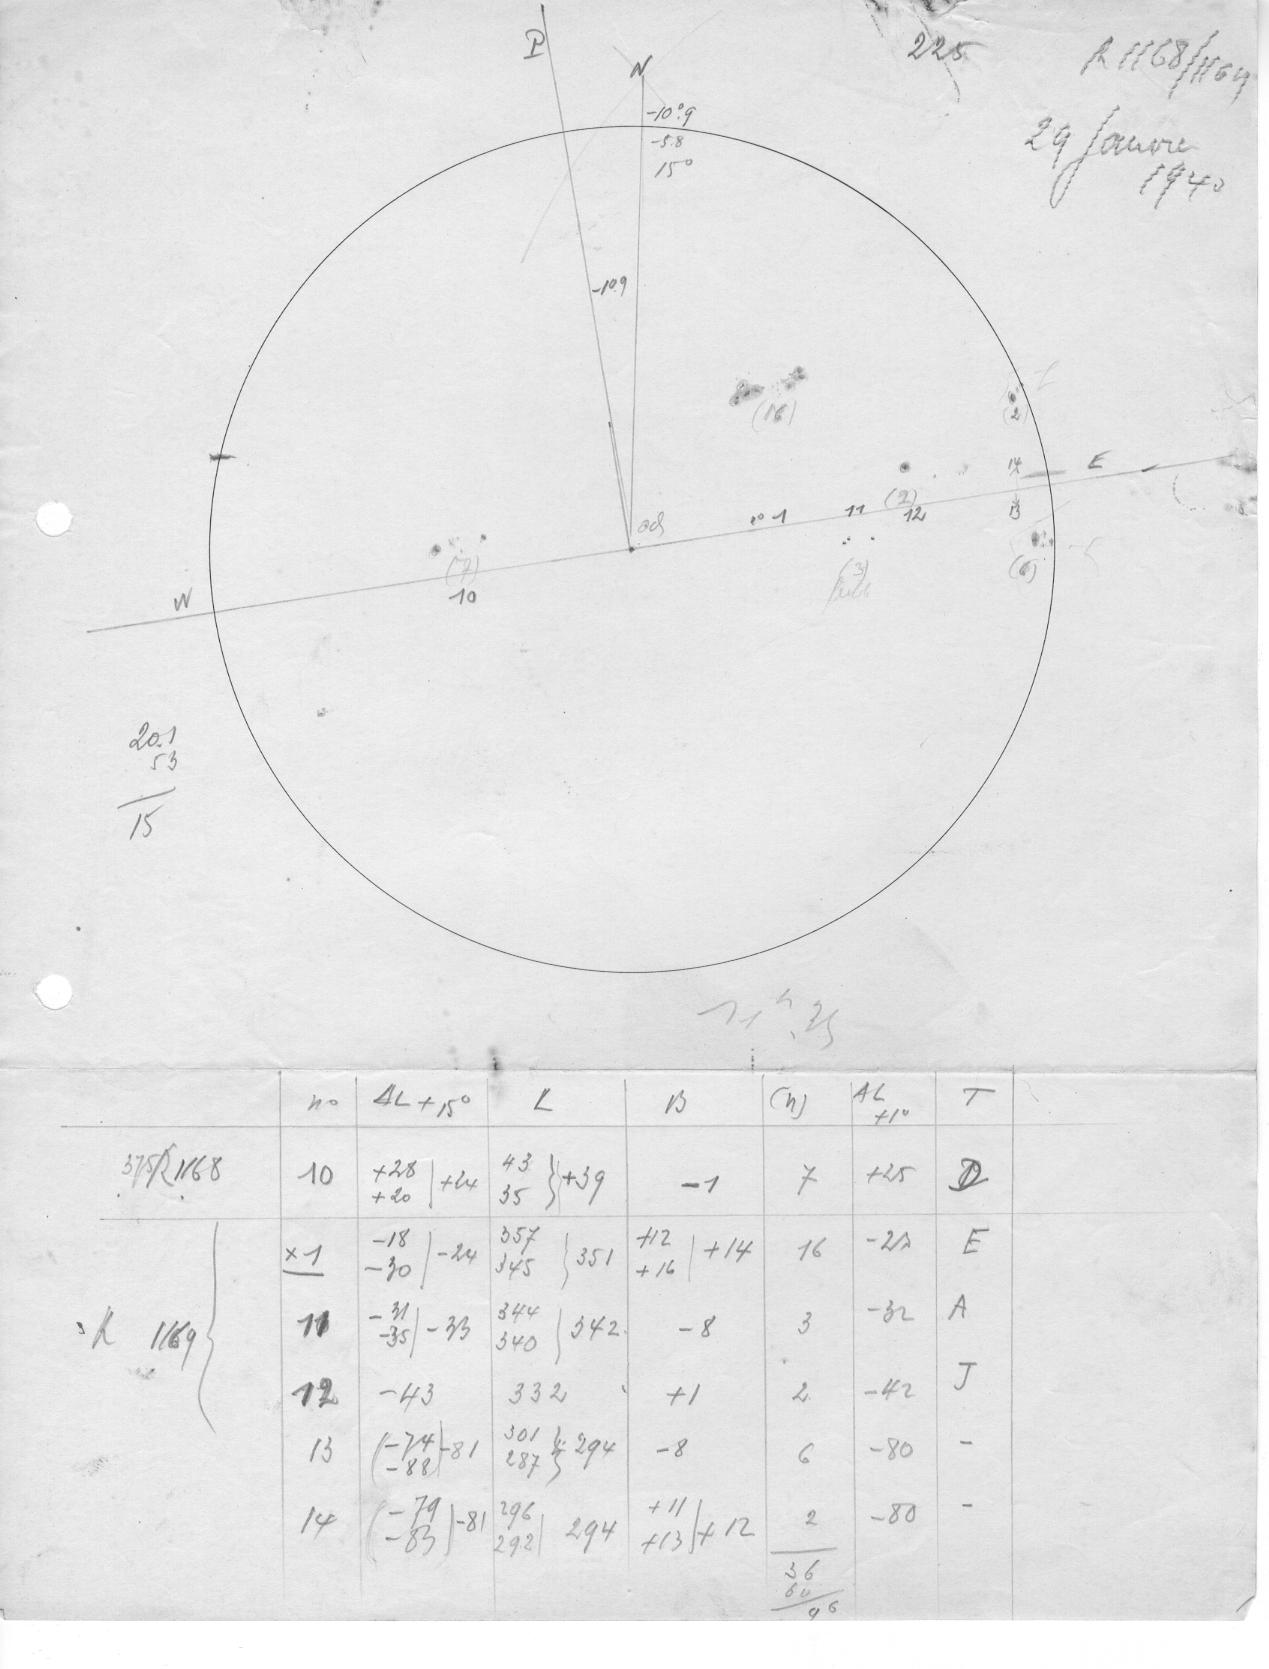 P
N
225
R 1168/1169
-10°.9
-5.8
15°
29 Janvier
1940
-10.9
(16)
(2)
14
E
(2)
1
11
12
13
(3)
(6)
(7)
10
W
20.1
53
15
11h.25
n° ΔL+15° L B (n) ΔL+1° T
375/R1168 10 +28 +20 | +24 43 35 } +39 -1 7 +25 D
x1 -18 -30 | -24 357 345 } 351 +12 +16 | +14 16 E
R 1169 { 11 -31 -35 | -33 344 340 } 342 -8 3 -32 A
12 -43 332 +1 2 -42 J
13 (-74 -88) -81 301 287 } 294 -8 6 -80 -
14 (-79 -83) -81 296 292 | 294 +11 +13 | +12 2 -80 -
36
60
96